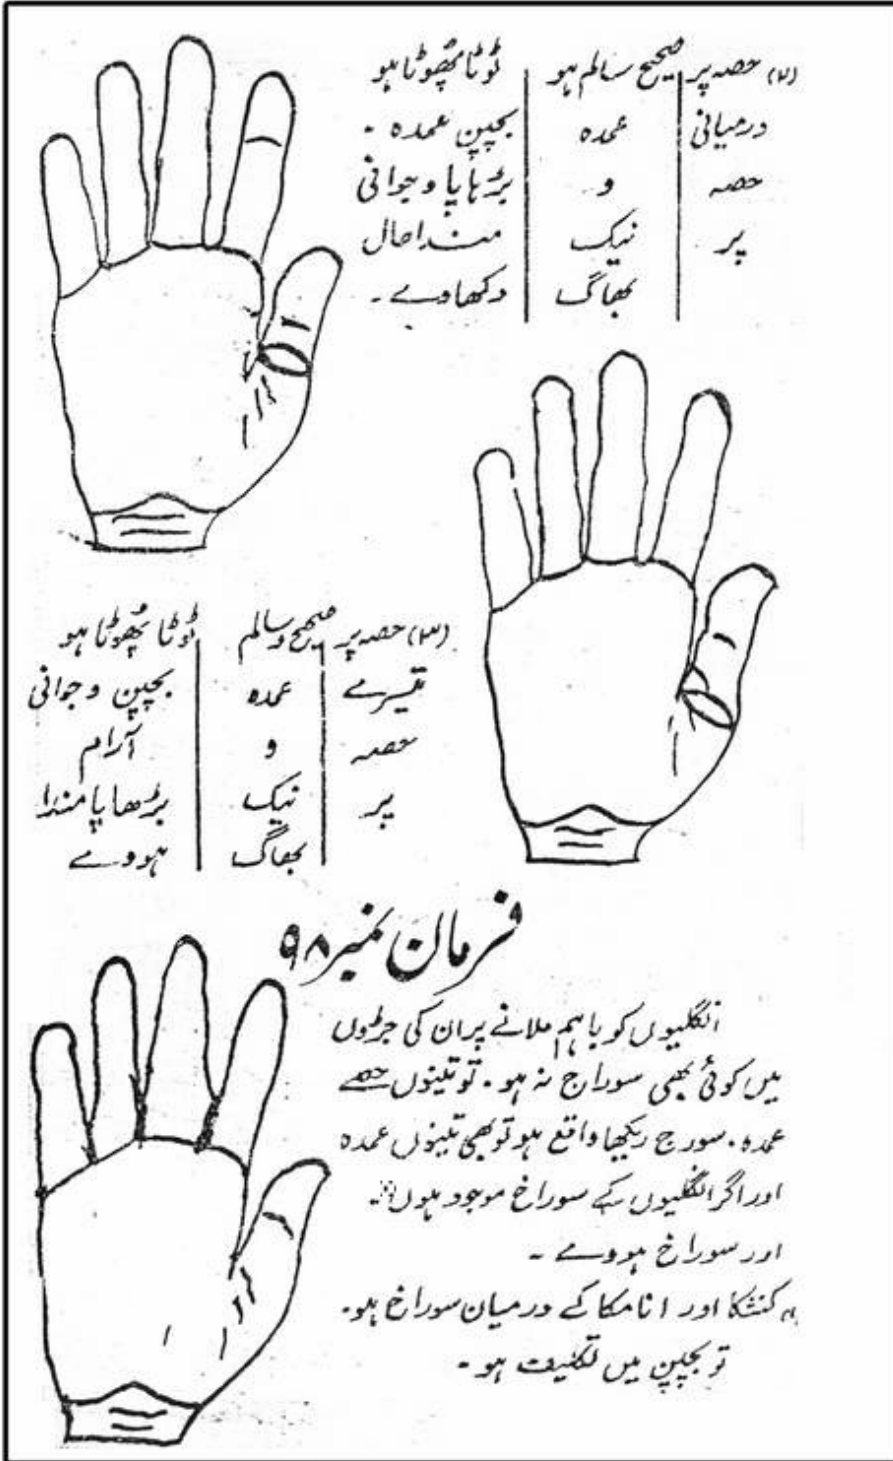 (۲) حصہ پر | صحیح سالم ہو | ٹوٹا پھوٹا ہو
درمیانی | عمدہ | بچپن عمدہ ۔
حصہ | و | بڑہاپا و جوانی
پر | نیک | مندا حال
بھاگ | دکھاوے ۔
(۳) حصہ پر | صحیح و سالم | ٹوٹا پھوٹا ہو
تیسرے | عمدہ | بچپن و جوانی
حصہ | و | آرام
پر | نیک | بڑھاپا مندا
بھاگ | ہووے
فرمان نمبر ۹۸
انگلیوں کو باہم ملانے پر ان کی جڑوں
میں کوئی بھی سوراج نہ ہو ۔ تو تینوں حصے
عمدہ ۔ سورج ریکھا واقع ہو تو بھی تینوں عمدہ
اور اگر انگلیوں کے سوراخ موجود ہوں ۔
اور سوراخ ہووے ۔
کنشکا اور انامکا کے درمیان سوراخ ہو ۔
تو بچپن میں تکلیف ہو ۔